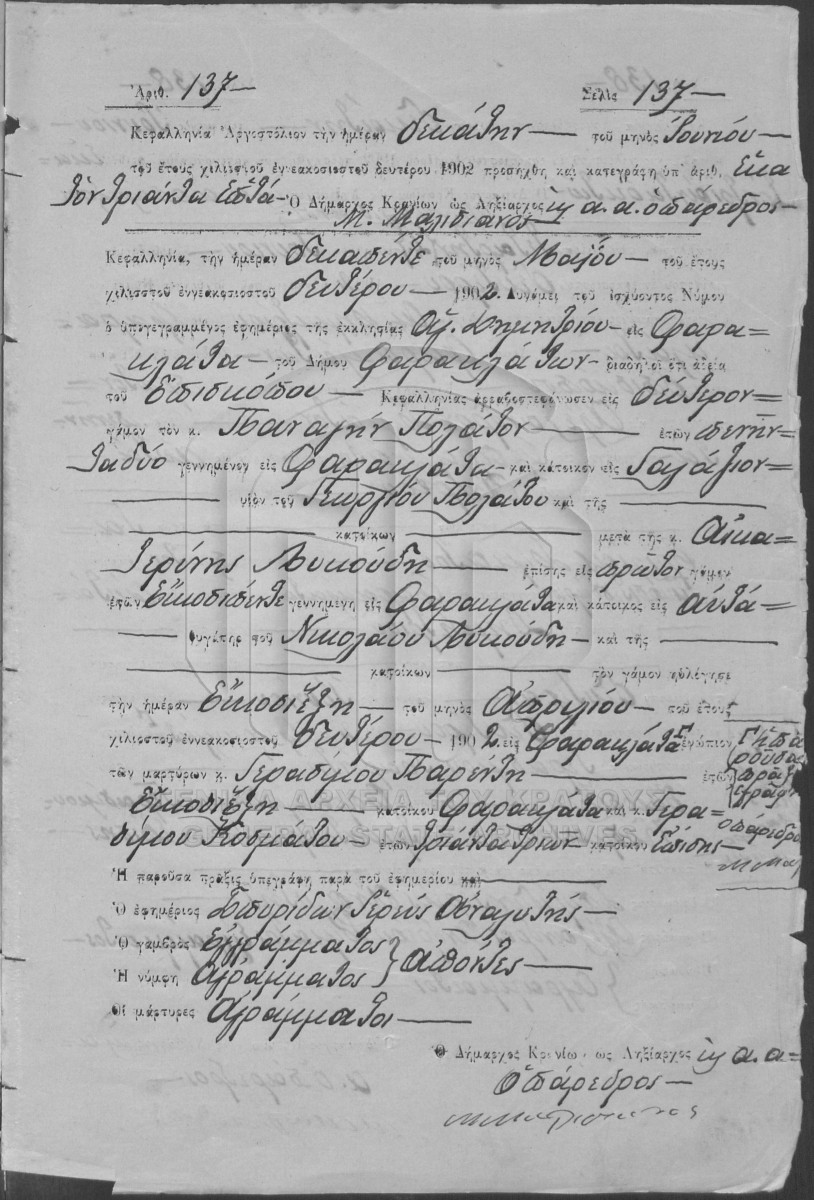 Ἀριθ. 137— Σελὶς 137—
Κεφαλληνία Ἀργοστόλιον τὴν ἡμέραν δεκάτην— τοῦ μηνὸς Ἰουνίου—
τοῦ ἔτους χιλιοστοῦ ἐννεακοσιοστοῦ δευτέρου 1902 προσήχθη καὶ κατεγράφη ὑπ' ἀριθ. Ἑκα
τὸν τριάντα ἑπτά— Ὁ Δήμαρχος Κρανίων ὡς Ληξίαρχος κ α. α. ὁ πάρεδρος—
Μ. Μαλισιάνος—
Κεφαλληνία, τὴν ἡμέραν δεκαπέντε τοῦ μηνὸς Μαΐου— τοῦ ἔτους
χιλιοστοῦ ἐννεακοσιοστοῦ δευτέρου— 1902. Δυνάμει τοῦ ἰσχύοντος Νόμου
ὁ ὑπογεγραμμένος ἐφημέριος τῆς ἐκκλησίας Ἁγ. Δημητρίου— εἰς Φαρα=
κλάτα— τοῦ Δήμου Φαρακλάτων— διαδηλοῖ ὅτι ἀδεία
τοῦ Ἐπισκόπου— Κεφαλληνίας ἀρραβοστεφάνωσεν εἰς δεύτερον=
γάμον τὸν κ. Παναγῆν Πολάτον— ἐτῶν πενῆν=
τα δύο γεννημένον εἰς Φαρακλάτα— καὶ κάτοικον εἰς Γαλάζιον—
υἱὸν τοῦ Γεωργίου Πολάτου καὶ τῆς
κατοίκων μετὰ τῆς κ. Αἰκα=
τερίνης Λυκούδη— ἐπίσης εἰς πρῶτον γάμον
ἐτῶν Εἴκοσι πέντε γεννημένη εἰς Φαρακλάτα καὶ κάτοικος εἰς αὐτά=
θυγάτηρ τοῦ Νικολάου Λυκούδη— καὶ τῆς
κατοίκων τὸν γάμον ηὐλόγησε
τὴν ἡμέραν Εἴκοσι ἕξη— τοῦ μηνὸς Ἀπριλίου— τοῦ ἔτους
χιλιοστοῦ ἐννεακοσιοστοῦ δευτέρου— 1902. εἰς Φαρακλάτα ἐνώπιον Γ/ ἡ πα
ροῦσα
τῶν μαρτύρων κ. Γερασίμου Παρέντη— ἐτῶν πρᾶξ
ἐγράφη
Εἴκοσι ἕξη— κατοίκου Φαρακλάτα καὶ κ. Γερα=
ὁ πάρεδρο
σίμου Κοσμάτου— ἐτῶν τριάντα τριῶν κατοίκου Ἐπίσης—
Μ Μαλ
Ἡ παροῦσα πρᾶξις ὑπεγράφη παρὰ τοῦ ἐφημερίου καὶ
Ὁ ἐφημέριος Σπυρίδων Ἱερεὺς Ἀναλυτής—
Ὁ γαμβρὸς Ἐγράμματος } ἀπόντες—
Ἡ νύμφη Ἀγράμματος
Οἱ μάρτυρες Ἀγράμματοι—
Ὁ Δήμαρχος Κρανίων ὡς Ληξίαρχος κ α. α=
Ὁ πάρεδρος—
Μ Μαλισιάνος
ΓΕΝΙΚΑ ΑΡΧΕΙΑ ΤΟΥ ΚΡΑΤΟΥΣ
GENERAL STATE ARCHIVES